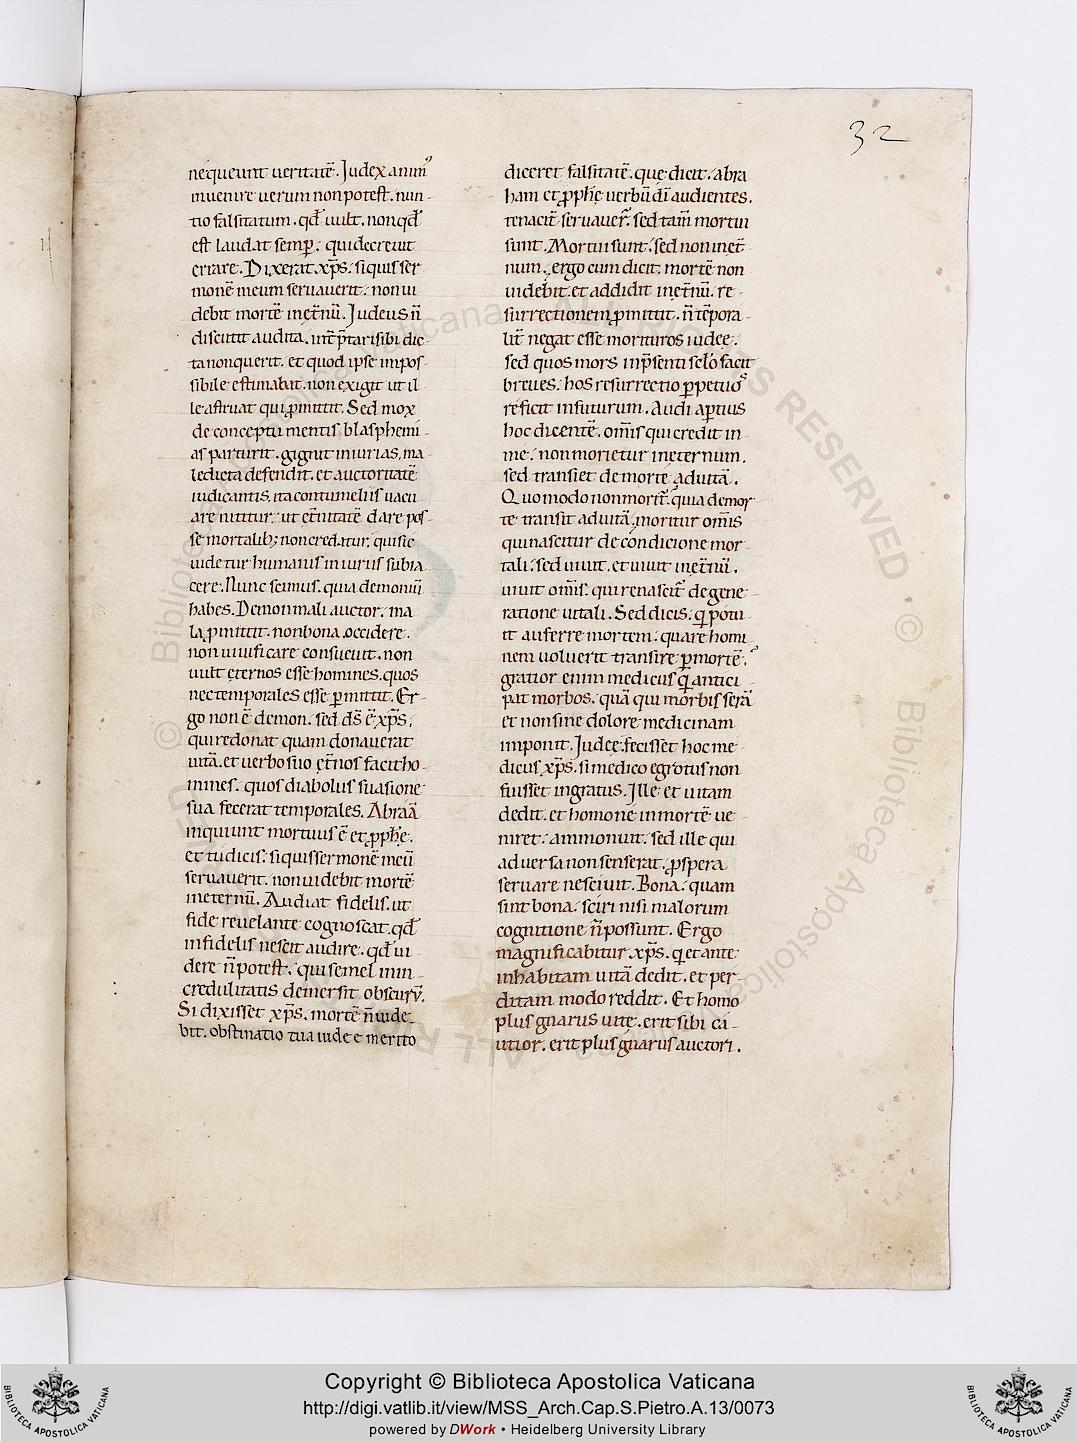 32
nequeunt ueritatē. Iudex animꝰ
inuenire uerum non potest. nun-
tio falsitatum. qđ uult. non qđ
est laudat semꝑ. qui decreuit
errare. Dixerat xp̄s. si quis ser-
monē meum seruauerit. non ui-
debit mortē inęt̄nū. Iudeus n̄
discutit audita. int̄p̄tari sibi dic-
ta non querit. et quod ipse impos-
sibile estimabat. non exigit ut il-
le astruat qui ꝓmittit. Sed mox
de conceptu mentis blasphemi-
as parturit. gignit iniurias. ma
ledicta defendit. et auctoritatē
iudicantis. ita contumeliis uacu
are nititur. ut et̄nitatē dare pos-
se mortalib; non credatur. qui sic
uidetur humanis iniuriis subia
cere. Nunc scimus. quia demoniū
habes. Demon mali auctor. ma
la ꝓmittit. non bona. occidere.
non uiuificare consueuit. non
uult eternos esse homines. quos
nec temporales esse ꝑmittit. Er-
go non ē demon. sed d̄s ē xp̄s.
qui redonat quam donauerat
uitā. et uerbo suo et̄nos facit ho-
mines. quos diabolus suasione
sua fecerat temporales. Abraā
inquiunt mortuus ē et ꝓph̄e.
et tu dicis. si quis sermonē meū
seruauerit. non uidebit mortē
ineternū. Audiat fidelis. ut
fide reuelante cognoscat. qđ
infidelis nescit audire. qđ ui-
dere n̄ potest. qui semel in in-
credulitatis demersit obscurū.
Si dixisset xp̄s. mortē n̄ uide-
bit. obstinatio tua iudee merito
diceret falsitatē. que dicit. abra
ham et ꝓph̄ę uerbū dī audientes.
tenacit̄ seruauer̄. sed tam̄ mortui
sunt. Mortui sunt. sed non inet̄-
num. ergo cum dicit. mortē non
uidebit. et addidit inęt̄nū. re-
surrectionem ꝓmittit. n̄ tēpora-
lit̄ negat esse morituros iudeę.
sed quos mors inp̄senti sclo facit
breues. hos resurrectio ꝑpetuos
reficit in futurum. Audi aꝑtius
hoc dicentē. om̄is qui credit in
me. non morietur ineternum.
sed transiet de morte aduitā.
Quomodo non morit̄. quia demor-
te transit aduitā. moritur om̄is
qui nascitur de condicione mor-
tali. sed uiuit. et uiuit inęt̄nū.
uiuit om̄is. qui renascit̄ de gene-
ratione uitali. Sed dicis. q̄ potu-
it auferre mortem. quare homi
nem uoluerit transire ꝑ mortē.
gratior enim medicus q̄ antici-
pat morbos. quā qui morbis serā
et non sine dolore medicinam
imponit. Iudeę fecisset hoc me-
dicus xp̄s. si medico egrotus non
fuisset ingratus. Ille et uitam
dedit. et homo ne in mortē ue-
niret. ammonuit. sed ille qui
aduersa non senserat. ꝓspera
seruare nesciuit. Bona. quam
sint bona. sciri nisi malorum
cognitione n̄ possunt. Ergo
magnificabitur xp̄s. q̄ et ante
inhabitam uitā dedit. et per-
ditam modo reddit. Et homo
plus gnarus uitę. erit sibi ca-
utior. erit plus gnarus auctori.
Copyright © Biblioteca Apostolica Vaticana
http://digi.vatlib.it/view/MSS_Arch.Cap.S.Pietro.A.13/0073
powered by DWork • Heidelberg University Library
BIBLIOTECA APOSTOLICA VATICANA
BIBLIOTECA APOSTOLICA VATICANA
© Biblioteca Apostolica Vaticana ALL RIGHTS RESERVED
© Biblioteca Apostolica Vaticana ALL RIGHTS RESERVED